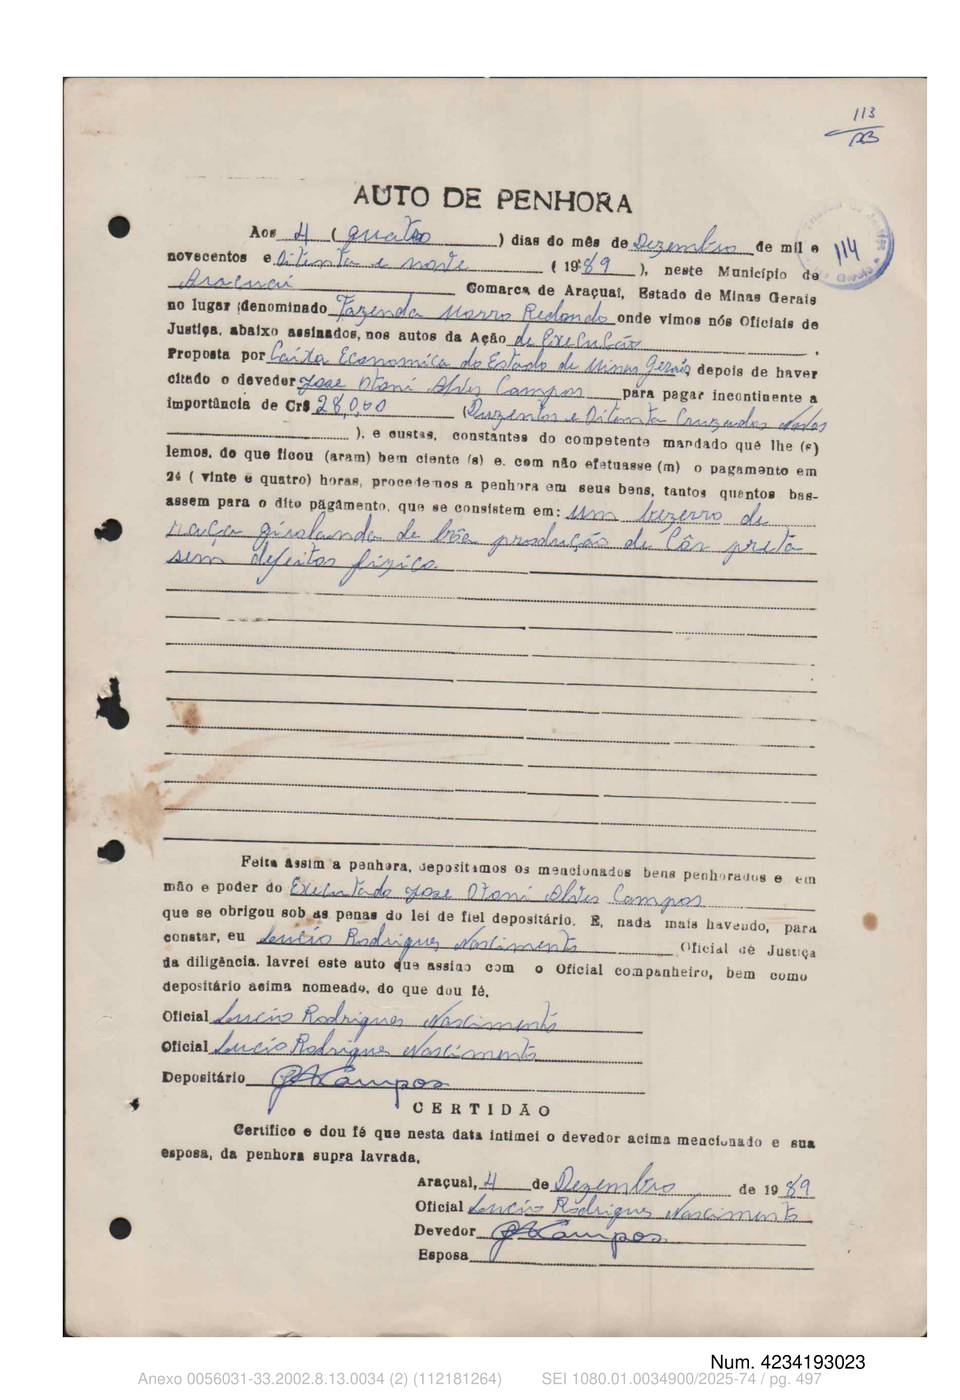 113
AUTO DE PENHORA
114
Aos 4 ( quatro ) dias do mês de Dezembro de mil e
novecentos e Oitenta e nove ( 1989 ), neste Município de
Araçuai Comarca de Araçuaí, Estado de Minas Gerais
no lugar denominado Fazenda Morro Redondo onde vimos nós Oficiais de
Justiça, abaixo assinados, nos autos da Ação de Execução ,
Proposta por Caixa Economica do Estado de Minas Gerais depois de haver
citado o devedor Jose Otoni Alves Campos para pagar incontinente a
importância de Cr$ 28,000 (Duzentos e Oitenta Cruzados Novos
), e custas, constantes do competente mandado que lhe (s)
lemos, do que ficou (aram) bem ciente (s) e, com não efetuasse (m) o pagamento em
24 ( vinte e quatro) horas, procedemos a penhora em seus bens, tantos quantos bas-
assem para o dito pagamento, que se consistem em: um bezerro de
raça girolanda de bôa produção de Côr preta
sem defeitos fizico.
Feita assim a penhora, depositamos os mencionados bens penhorados e em
mão e poder do Executado Jose Otoni Alves Campos
que se obrigou sob as penas do lei de fiel depositário. E, nada mais havendo, para
constar, eu Lucio Rodrigues Nascimento Oficial de Justiça
da diligência, lavrei este auto que assino com o Oficial companheiro, bem como
depositário acima nomeado, do que dou fé.
Oficial Lucio Rodrigues Nascimento
Oficial Lucio Rodrigues Nascimento
Depositário Campos
CERTIDÃO
Certifico e dou fé que nesta data intimei o devedor acima mencionado e sua
esposa, da penhora supra lavrada.
Araçuaí, 4 de Dezembro de 1989
Oficial Lucio Rodrigues Nascimento
Devedor Campos
Esposa
Num. 4234193023
Anexo 0056031-33.2002.8.13.0034 (2) (112181264) SEI 1080.01.0034900/2025-74 / pg. 497